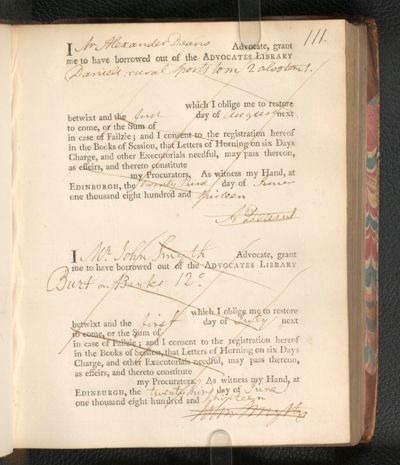 111.
I Mr Alexander Deans Advocate, grant
me to have borrowed out of the ADVOCATES LIBRARY
Daniels rural sports tom 2
which I oblige me to restore
betwixt and the first day of August next
to come, or the Sum of
in case of Failzie; and I consent to the registration hereof
in the Books of Session, that Letters of Horning on six Days
Charge, and other Executorials needful, may pass thereon,
as effeirs, and thereto constitute
my Procurators. As witness my Hand, at
EDINBURGH, the twenty third day of June
one thousand eight hundred and thirteen
A Deans
I Mr. John Smyth Advocate, grant
me to have borrowed out of the ADVOCATES LIBRARY
Burt on Banks 12o
which I oblige me to restore
betwixt and the first day of July next
to come, or the Sum of
in case of Failzie; and I consent to the registration hereof
in the Books of Session, that Letters of Horning on six Days
Charge, and other Executorials needful, may pass thereon,
as effeirs, and thereto constitute
my Procurators. As witness my Hand, at
EDINBURGH, the twenty third day of June
one thousand eight hundred and thirteen
John Smyth